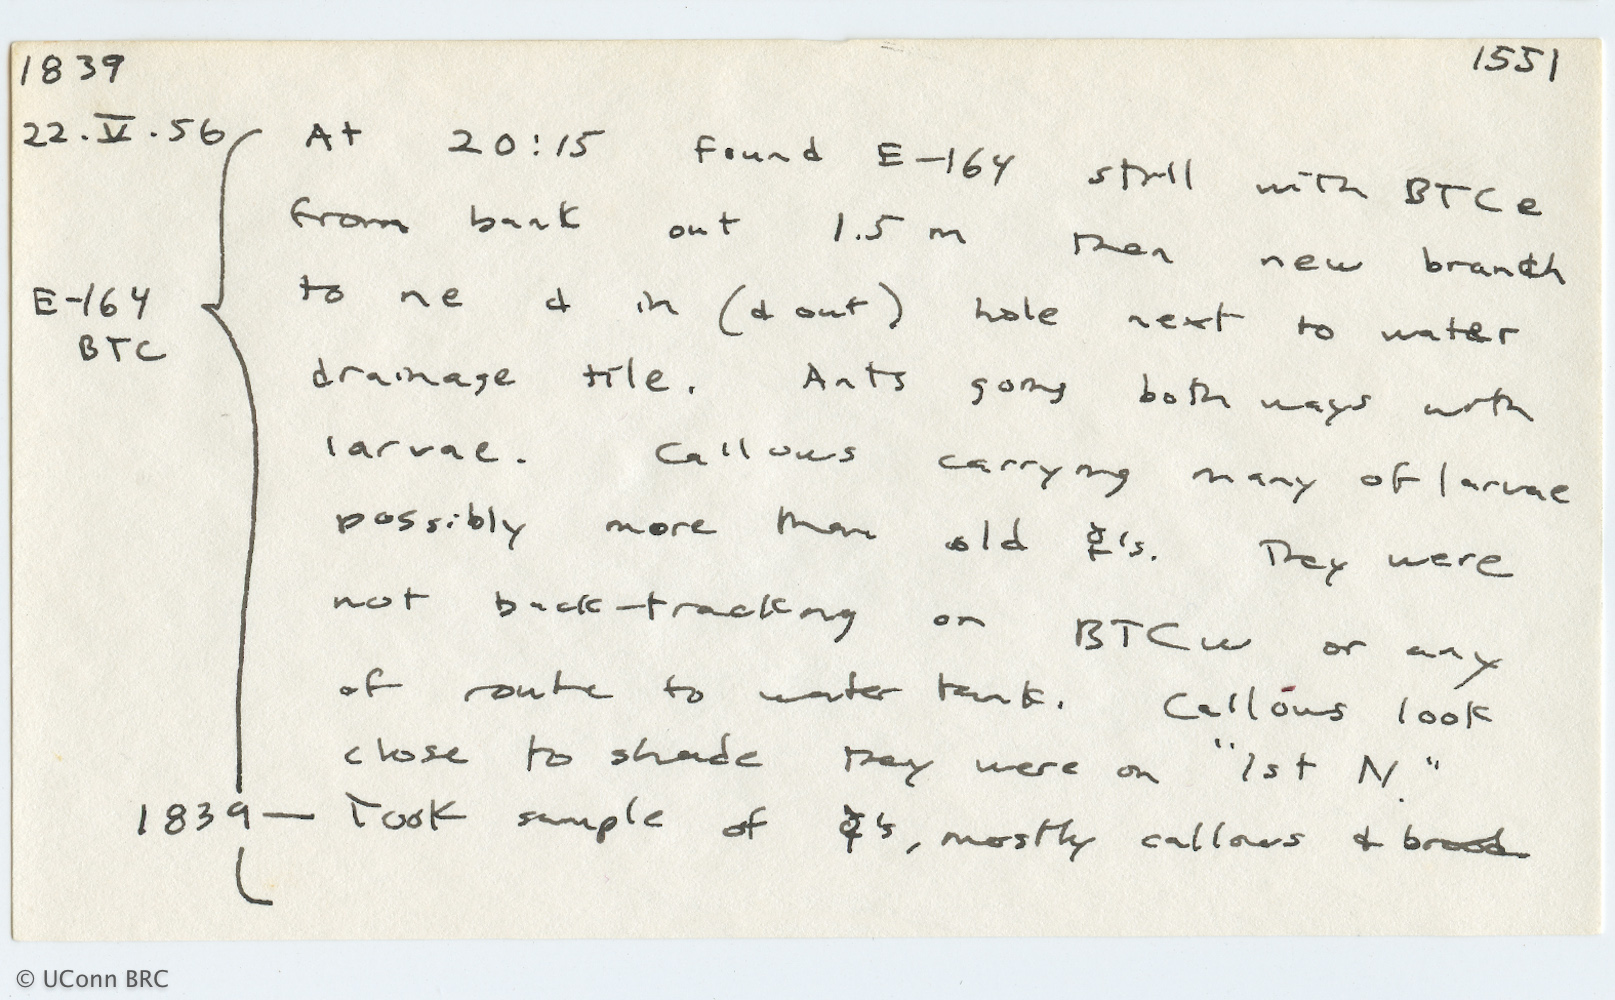 1839
1551
22.V.56
At 20:15 found E-164 still with BTCe
from bank out 1.5 m then new branch
E-164
BTC
to ne & in (& out) hole next to water
drainage tile. Ants going both ways with
larvae. Callows carrying many of larvae
possibly more than old ☿'s. They were
not back-tracking on BTCw or any
of route to water tank. Callows look
close to shade they were on "1st N."
1839 — Took sample of ☿'s, mostly callows & brood
© UConn BRC